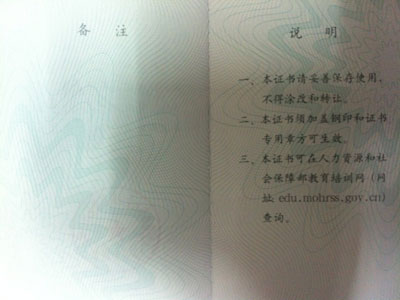 备 注
说 明
一、本证书请妥善保存使用，
不得涂改和转让。
二、本证书须加盖钢印和证书
专用章方可生效。
三、本证书可在人力资源和社
会保障部教育培训网（网
址 edu.mohrss.gov.cn）
查询。